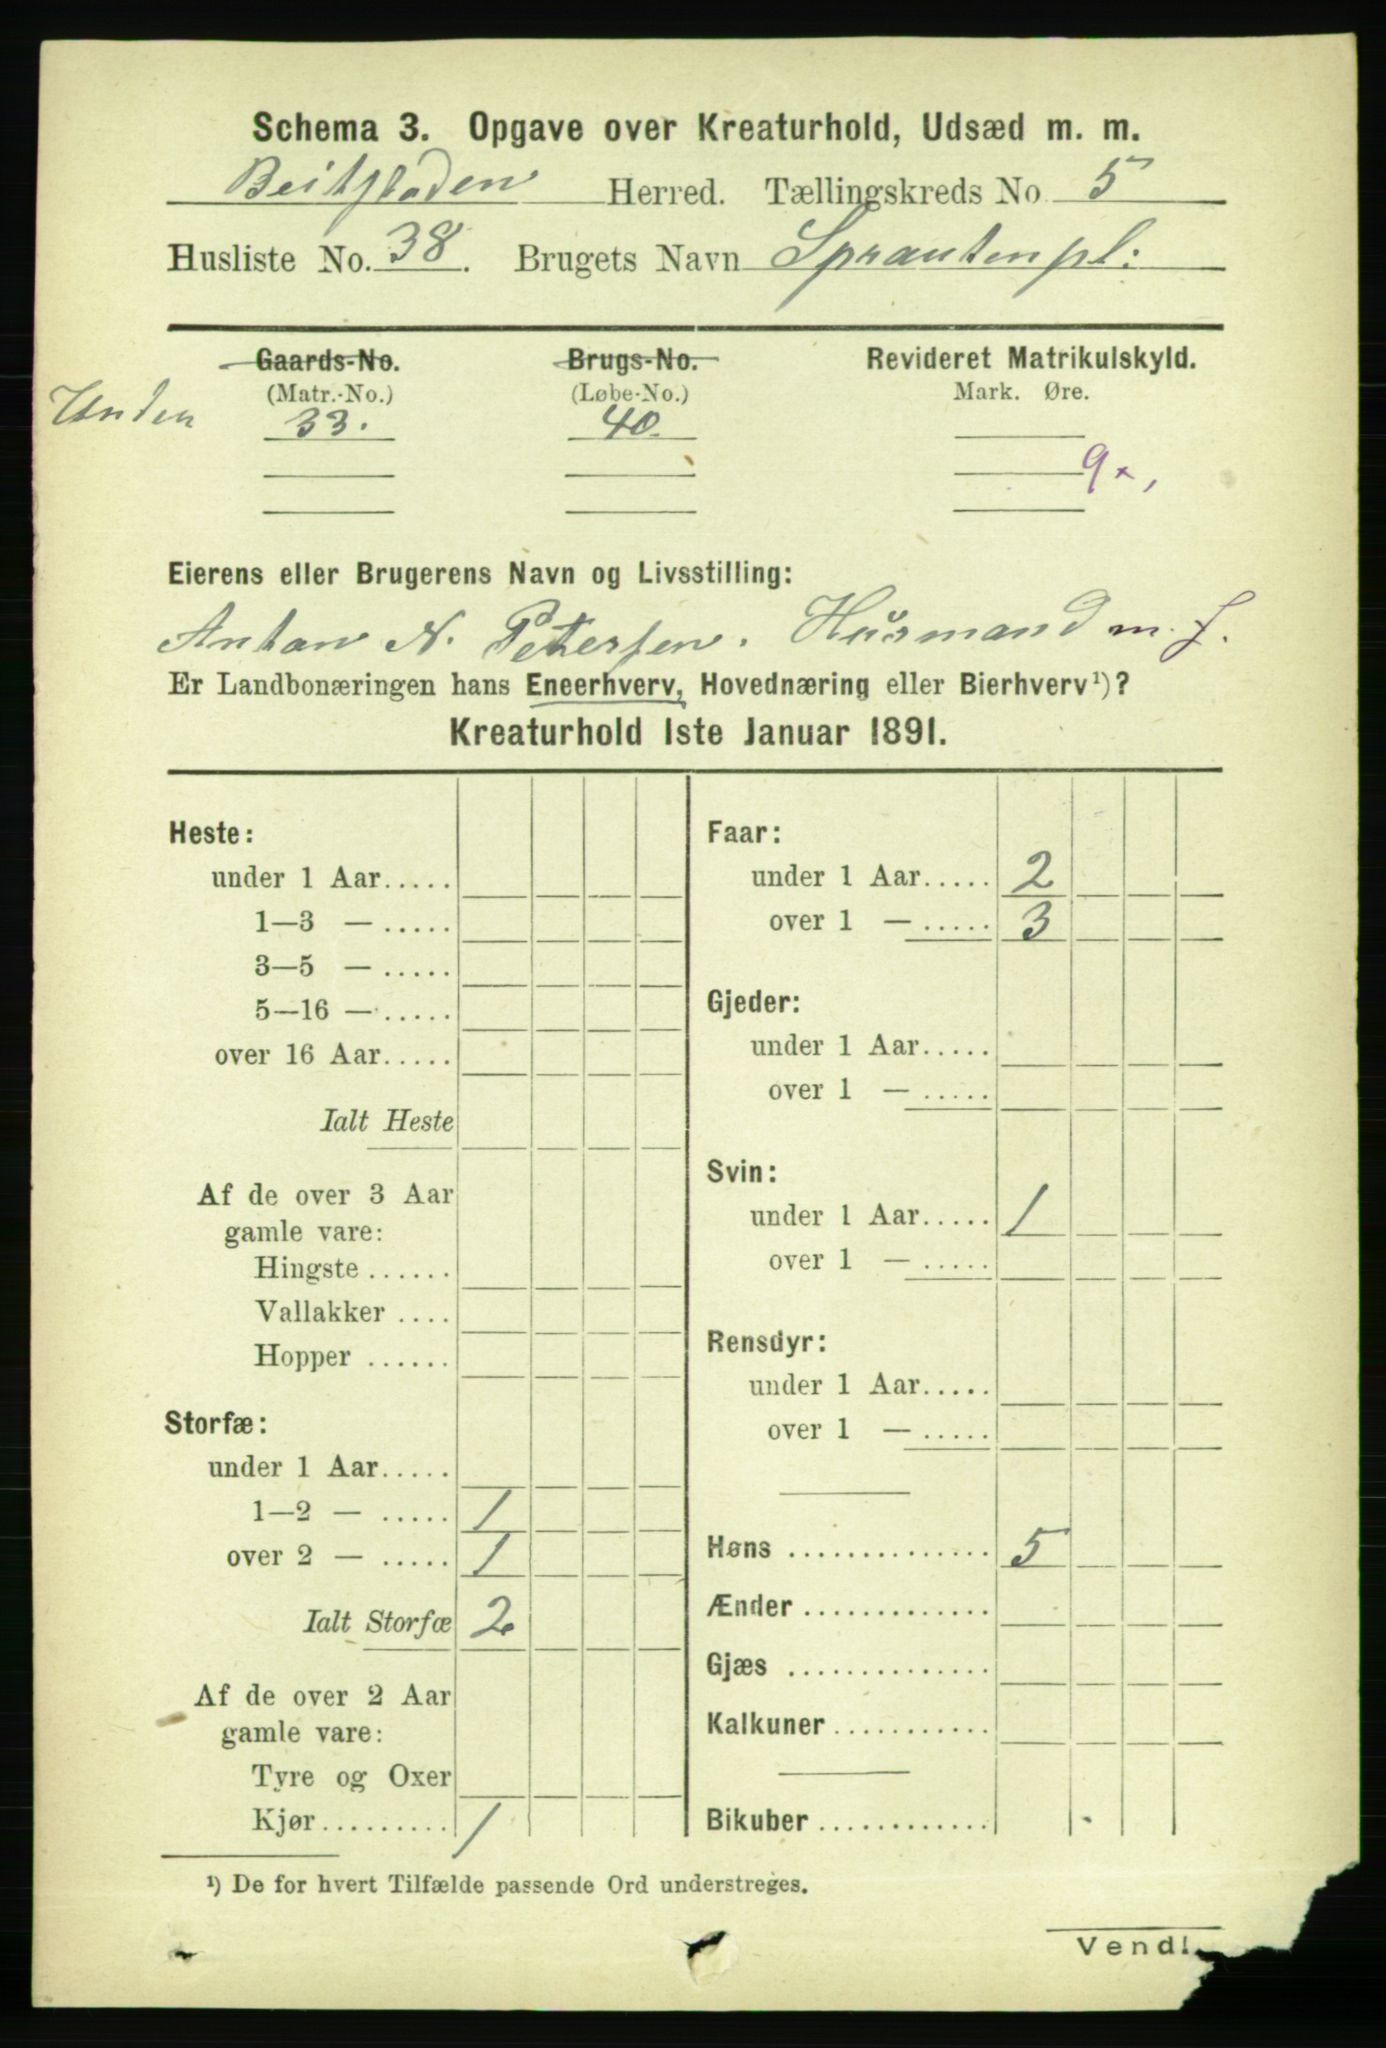 Schema 3. Opgave over Kreaturhold, Udsæd m. m.
Beitstaden Herred. Tællingskreds No. 5
Husliste No. 38. Brugets Navn Sprauten pl:
Gaards-No. Brugs-No. Revideret Matrikulskyld.
(Matr.-No.) (Løbe-No.) Mark. Øre.
Unden 33. 40.
Eierens eller Brugerens Navn og Livsstilling:
Anton N. Petersen. Husmand m. J.
Er Landbonæringen hans Eneerhverv, Hovednæring eller Bierhverv¹)?
Kreaturhold 1ste Januar 1891.
Heste:
under 1 Aar.....
1—3 — .....
3—5 — .....
5—16 — .....
over 16 Aar.....
Ialt Heste
Af de over 3 Aar
gamle vare:
Hingste ......
Vallakker ....
Hopper ......
Storfæ:
under 1 Aar.....
1—2 — ..... 1
over 2 — ..... 1
Ialt Storfæ 2
Af de over 2 Aar
gamle vare:
Tyre og Oxer
Kjør......... 1
Faar:
under 1 Aar..... 2
over 1 — ..... 3
Gjeder:
under 1 Aar.....
over 1 — .....
Svin:
under 1 Aar..... 1
over 1 — .....
Rensdyr:
under 1 Aar.....
over 1 — .....
Høns .............. 5
Ænder .............
Gjæs ..............
Kalkuner ...........
Bikuber ............
¹) De for hvert Tilfælde passende Ord understreges.
Vend!